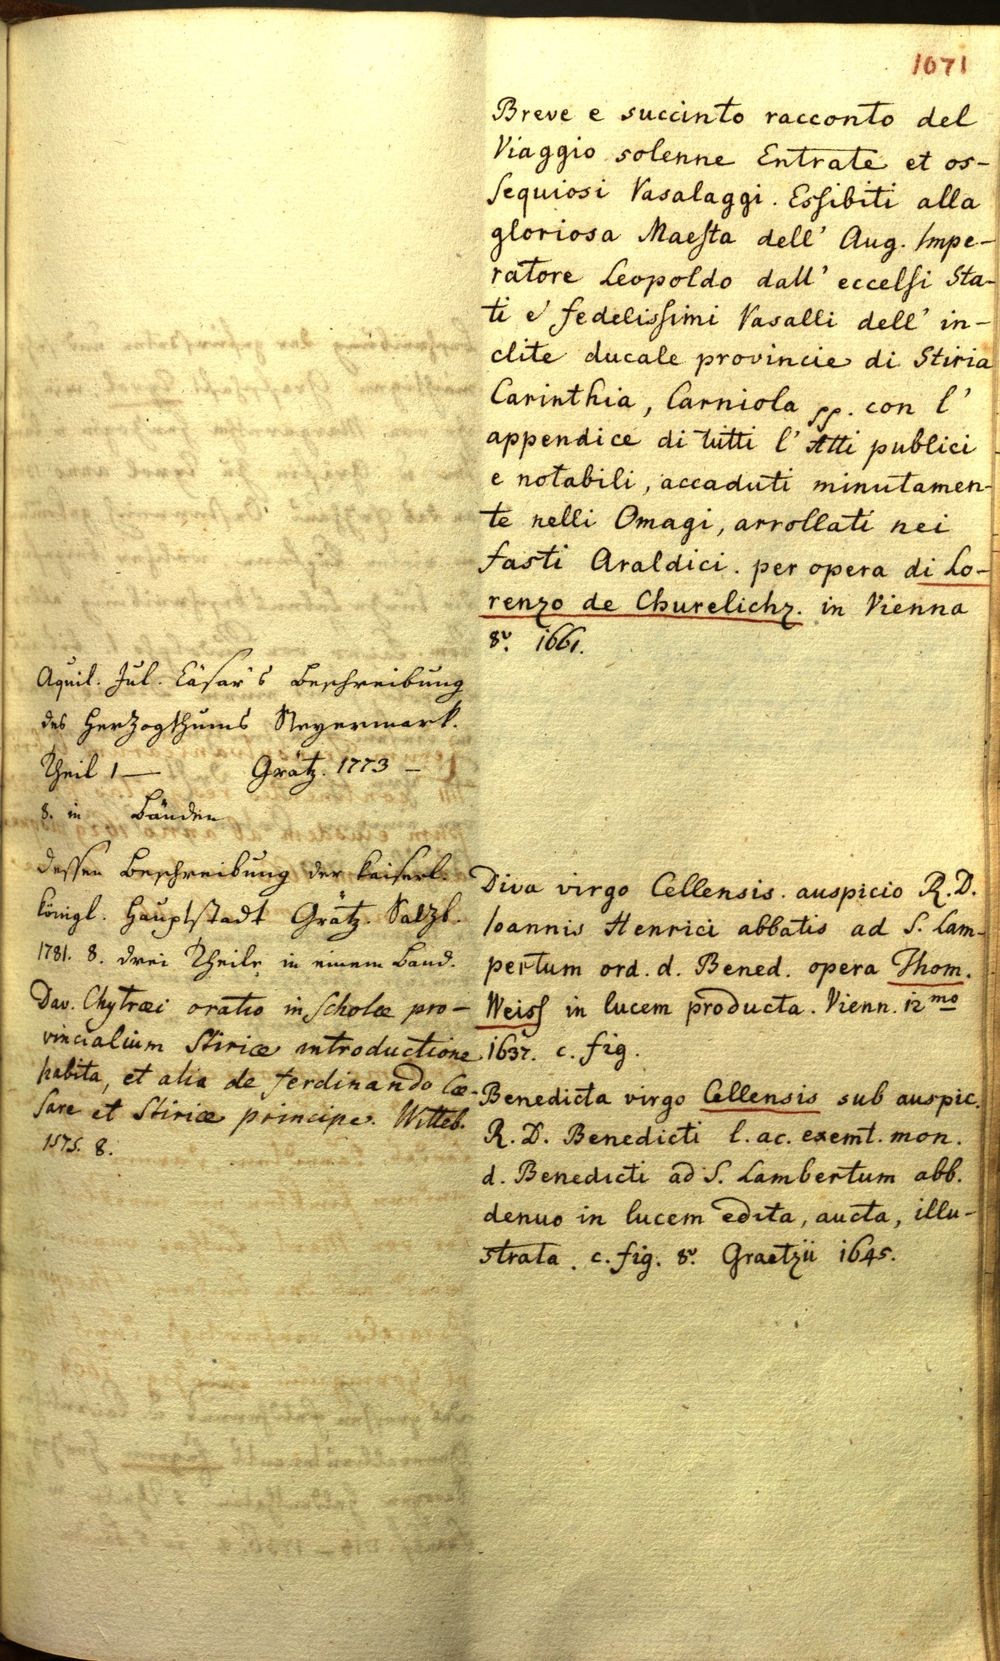 1071
Breve e succinto racconto del
Viaggio solenne Entrate et os-
sequiosi Vasalaggi. Essibiti alla
gloriosa Maesta dell' Aug. Impe-
ratore Leopoldo dall' eccelsi Sta-
ti e' fedelissimi Vasalli dell' in-
clite ducale provincie di Stiria
Carinthia, Carniola pp. con l'
appendice di tutti l' Atti publici
e notabili, accaduti minutamen-
te nelli Omagi, arrollati nei
fasti Araldici. per opera di Lo-
renzo de Churelichz. in Vienna
8v. 1661.
Aquil. Jul. Cäsar's Beschreibung
des Herzogthums Steyermark.
Theil 1 — Grätz. 1773 —
8. in Bänden
dessen Beschreibung der kaiserl.
königl. Hauptstadt Grätz. Salzb.
1781. 8. drei Theile in einem Band.
Dav. Chytræi oratio in Scholæ pro-
vincialium Stiriæ introductione
habita, et alia de Ferdinando Cæ-
sare et Stiriæ principe. Witteb.
1575. 8.
Diva virgo Cellensis. auspicio R. D.
Ioannis Henrici abbatis ad S. Lam-
pertum ord. d. Bened. opera Thom.
Weiss in lucem producta. Vienn. 12mo
1637. c. fig.
Benedicta virgo Cellensis sub auspic.
R. D. Benedicti l. ac. exemt. mon.
d. Benedicti ad S. Lambertum abb.
denuo in lucem edita, aucta, illu-
strata. c. fig. 8v. Graetzii 1645.